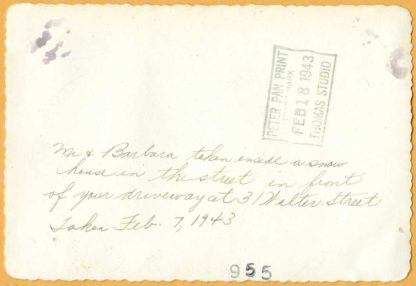 PETER PAN PRINT
TRADE MARK
FEB 18 1943
THOMAS STUDIO
Me & Barbara taken inside a snow
house in the street in front
of your driveway at 31 Walter Street
Taken Feb. 7, 1943
955